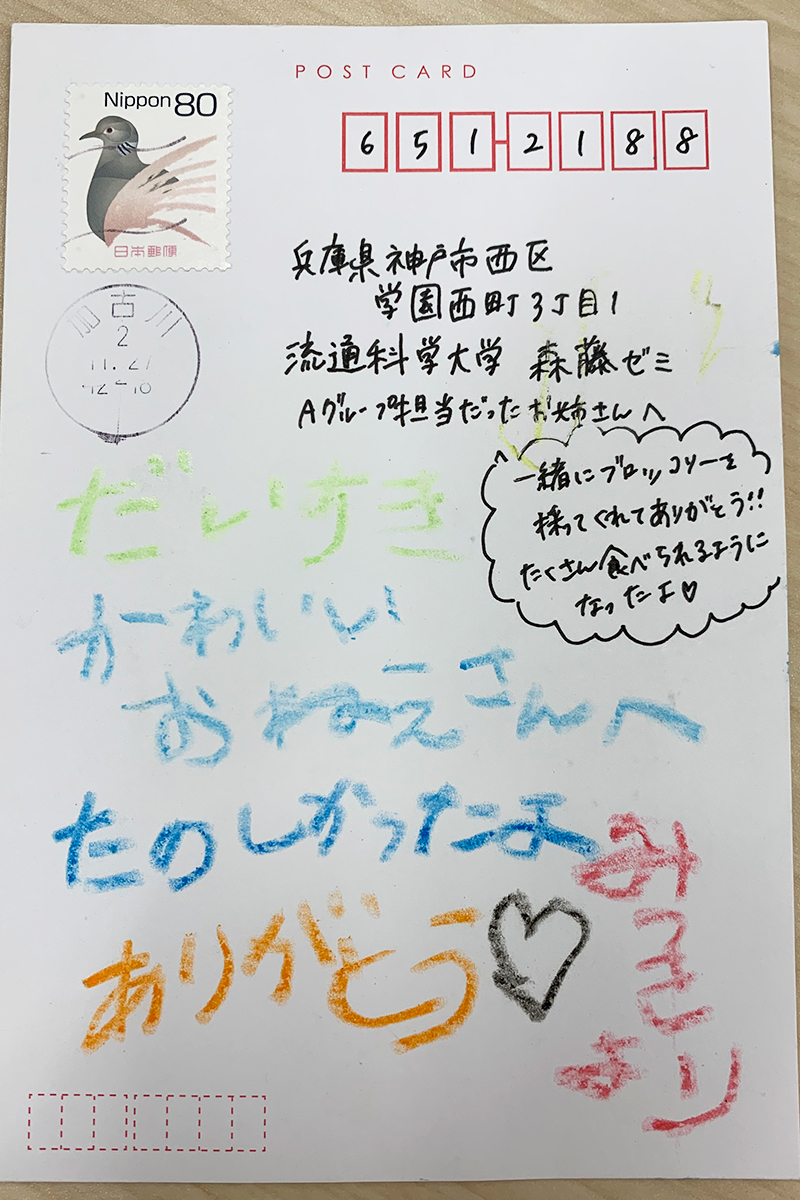 POST CARD
Nippon 80
日本郵便
651-2188
兵庫県神戸市西区
学園西町3丁目1
流通科学大学 森藤ゼミ
Aグループ担当だったお姉さんへ
加古川
2
11.27
12-18
一緒にブロッコリーを
採ってくれてありがとう!!
たくさん食べられるように
なったよ♡
だいすき
かーわいい
おねーえさんへ
たのしかったよ
ありがとう♡
みつきより